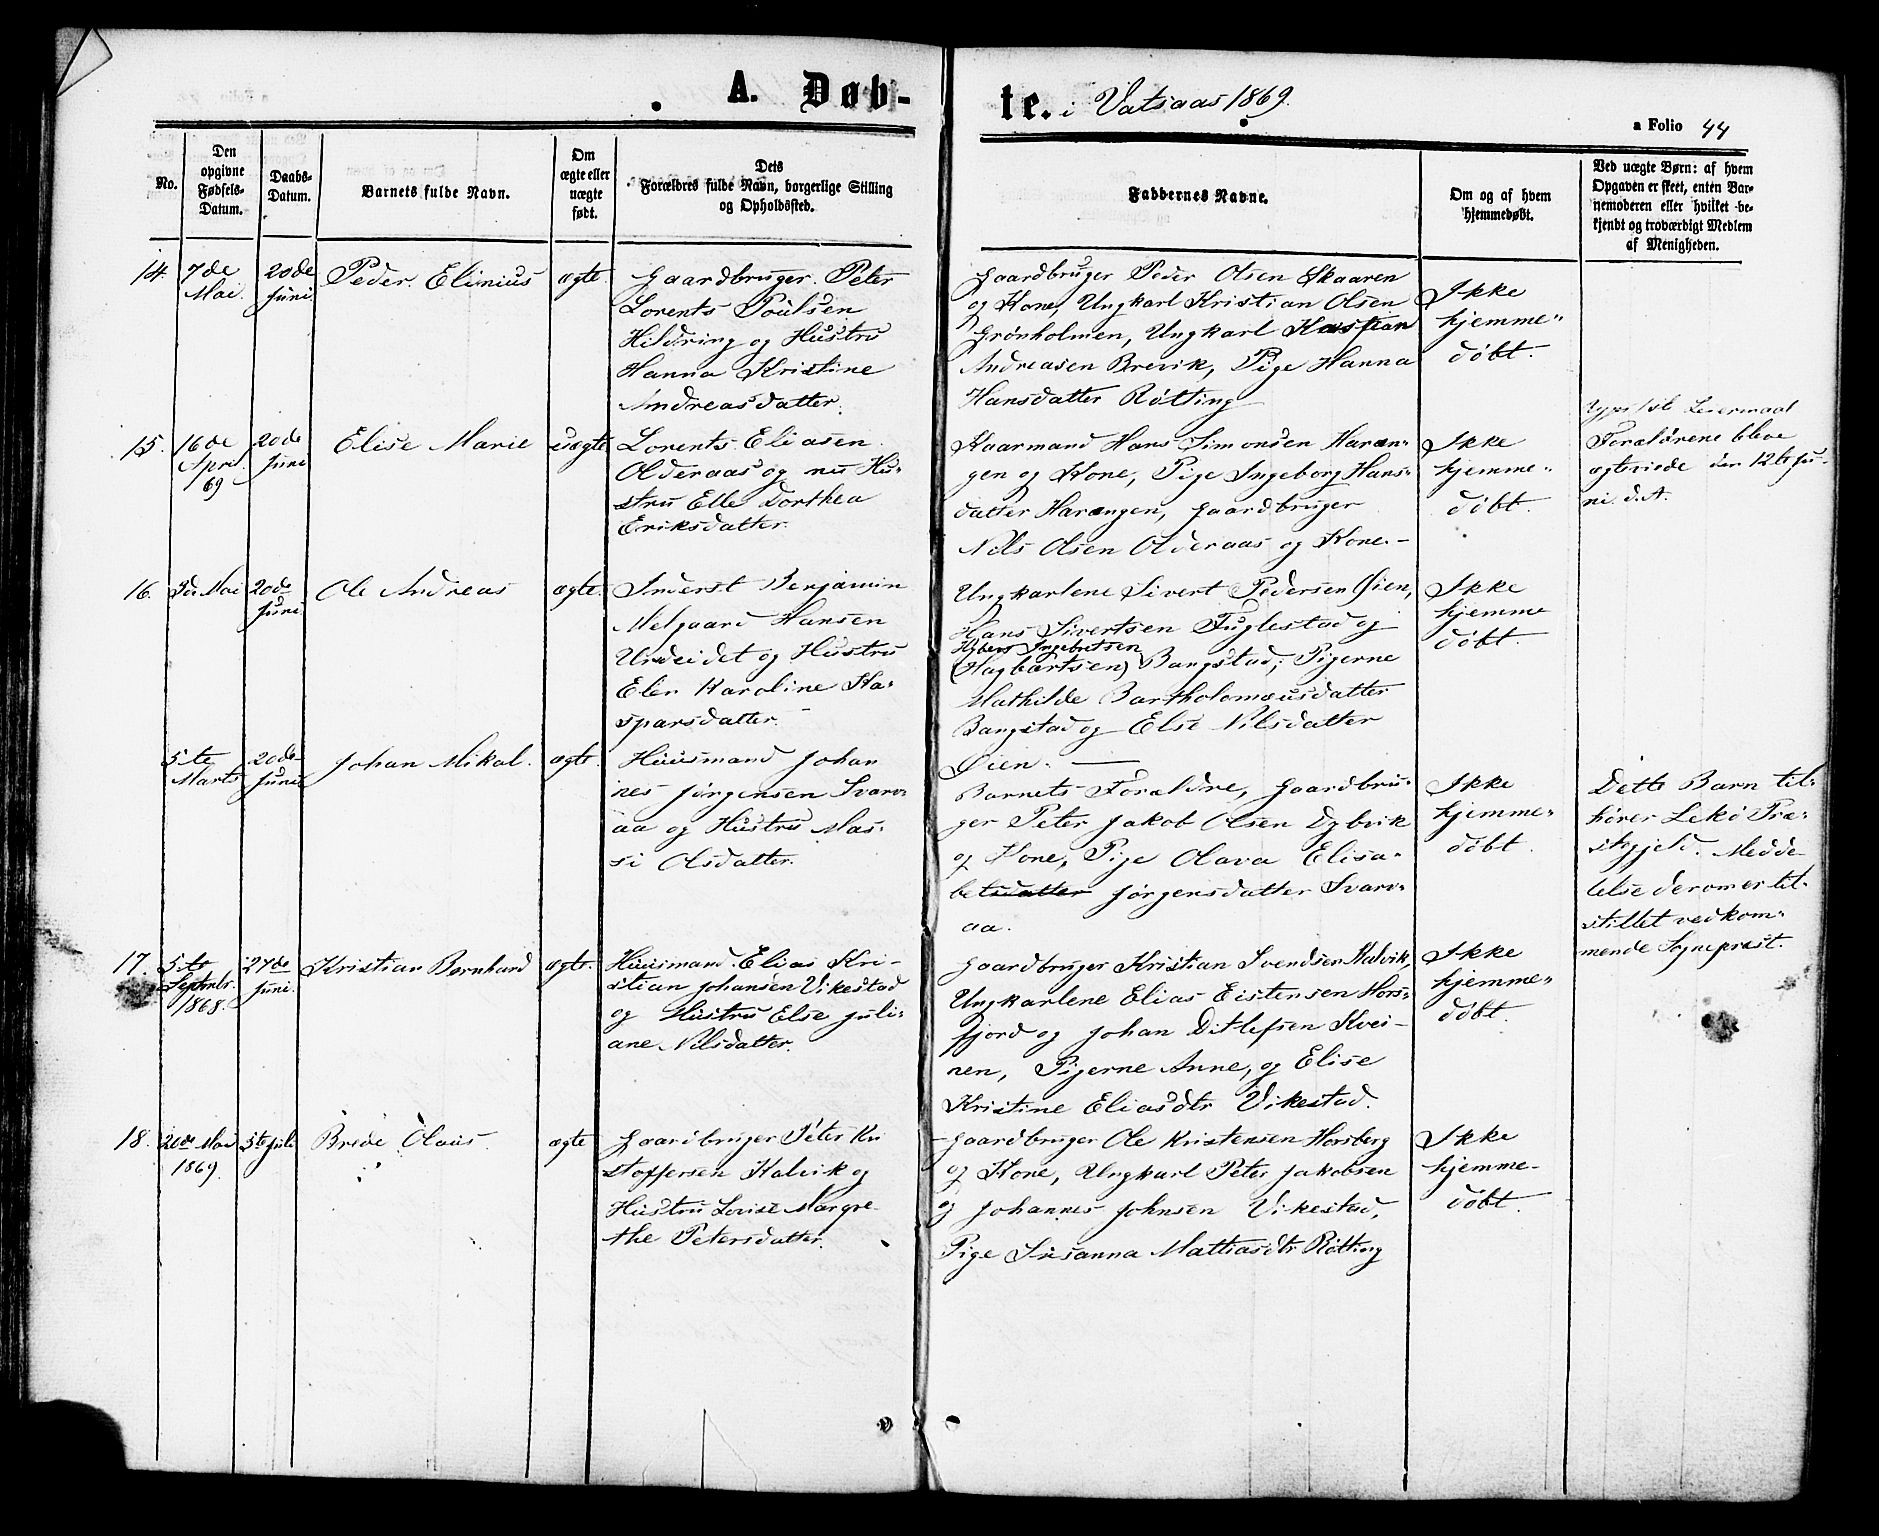 A. Døb-
te. i Vatsaas 1869.
a Folio 44
No.
Den
opgivne
Fødsels-
Datum.
Daabs-
Datum.
Barnets fulde Navn.
Om
ægte eller
uægte
født.
Dets
Forældres fulde Navn, borgerlige Stilling
og Opholdssted.
Faddernes Navne.
Om og af hvem
hjemmedøbt.
Ved uægte Børn: af hvem
Opgaven er skeet, enten Bar-
nemoderen eller hvilket be-
kjendt og troværdigt Medlem
af Menigheden.
14.
7de
Mai.
20de
Juni.
Peder Elinius
ægte.
Gaardbruger Peter
Lorents Poulsen
Hildring og Hustru
Hanna Kristine
Andreasdatter.
Gaardbruger Peder Olsen Skaaren
og Kone, Ungkarl Kristian Olsen
Grønholmen, Ungkarl Kastian
Andreasen Brevik, Pige Hanna
Hansdatter Røtting
Ikke
hjemme-
døbt.
15.
16de
April
69
20de
Juni
Elise Marie
uægte
Lorents Eliasen
Olderaas og nu Hu-
stru Elle Dorthea
Eriksdatter.
Kaarmand Hans Simonsen Haran-
gen og Kone, Pige Ingeborg Hans-
datter Harangen, Gaardbruger
Nils Olsen Olderaas og Kone.-
Ikke
hjemme-
døbt.
Leiermaal
Forældrene bleve
ægteviede den 12te Ju-
ni d. A.
16.
3de Mai
20de
Juni
Ole Andreas
ægte.
Inderst Benjamin
Melgaard Hansen
Undeidet og Hustru
Elen Karoline Ka-
sparsdatter.
Ungkarlene Sivert Pedersen Øien,
Hans Sivertsen Fuglestad og
Ingebretsen
(Hagbartsen) Bangstad; Pigerne
Mathilde Bartholomæusdatter
Bangstad og Else Nilsdatter
Øien.
Ikke
hjemme
døbt.
5te
Marts
20de
Juni
Johan Mikal.
ægte.
Huusmand Johan
nes Jørgensen Svarv-
aa og Hustru Mas-
si Olsdatter.
Barnets Forældre, Gaardbru-
ger Peter Jakob Olsen Dybvik
og Kone, Pige Olava Elisa-
betsdatter Jørgensdatter Svarv-
aa.
Ikke
hjemme-
døbt.
Dette Barn til-
hører Lekø Præ-
stegjeld. Medde-
lelse derom er til-
stillet vedkom-
mende Sognepræst.
17.
5te
Septmbr.
1868.
27de
Juni.
Kristian Bernhard
ægte.
Huusmand Elias Kri-
stian Johansen Vikestad
og Hustru Else Juli-
ane Nilsdatter.
Gaardbruger Kristian Svendsen Kalvik,
Ungkarlene Elias Eistensen Hors-
fjord og Johan Ditlefsen Kvei-
nen, Pigerne Anne, og Elise
Kristine Eliasdtr Vikestad.
Ikke
hjemme-
døbt.
18.
20de Mai
1869.
5te Juli
Brede Olaus
ægte
Gaardbruger Peter Kri
stoffersen Kalvik og
Hustru Lovise Margre-
the Petersdatter.
Gaardbruger Ole Kristensen Horsberg
og Kone, Ungkarl Peter Jakobsen
og Johannes Johnsen Vikestad,
Pige Susanna Mattiasdtr Røtting
Ikke
hjemme-
døbt.